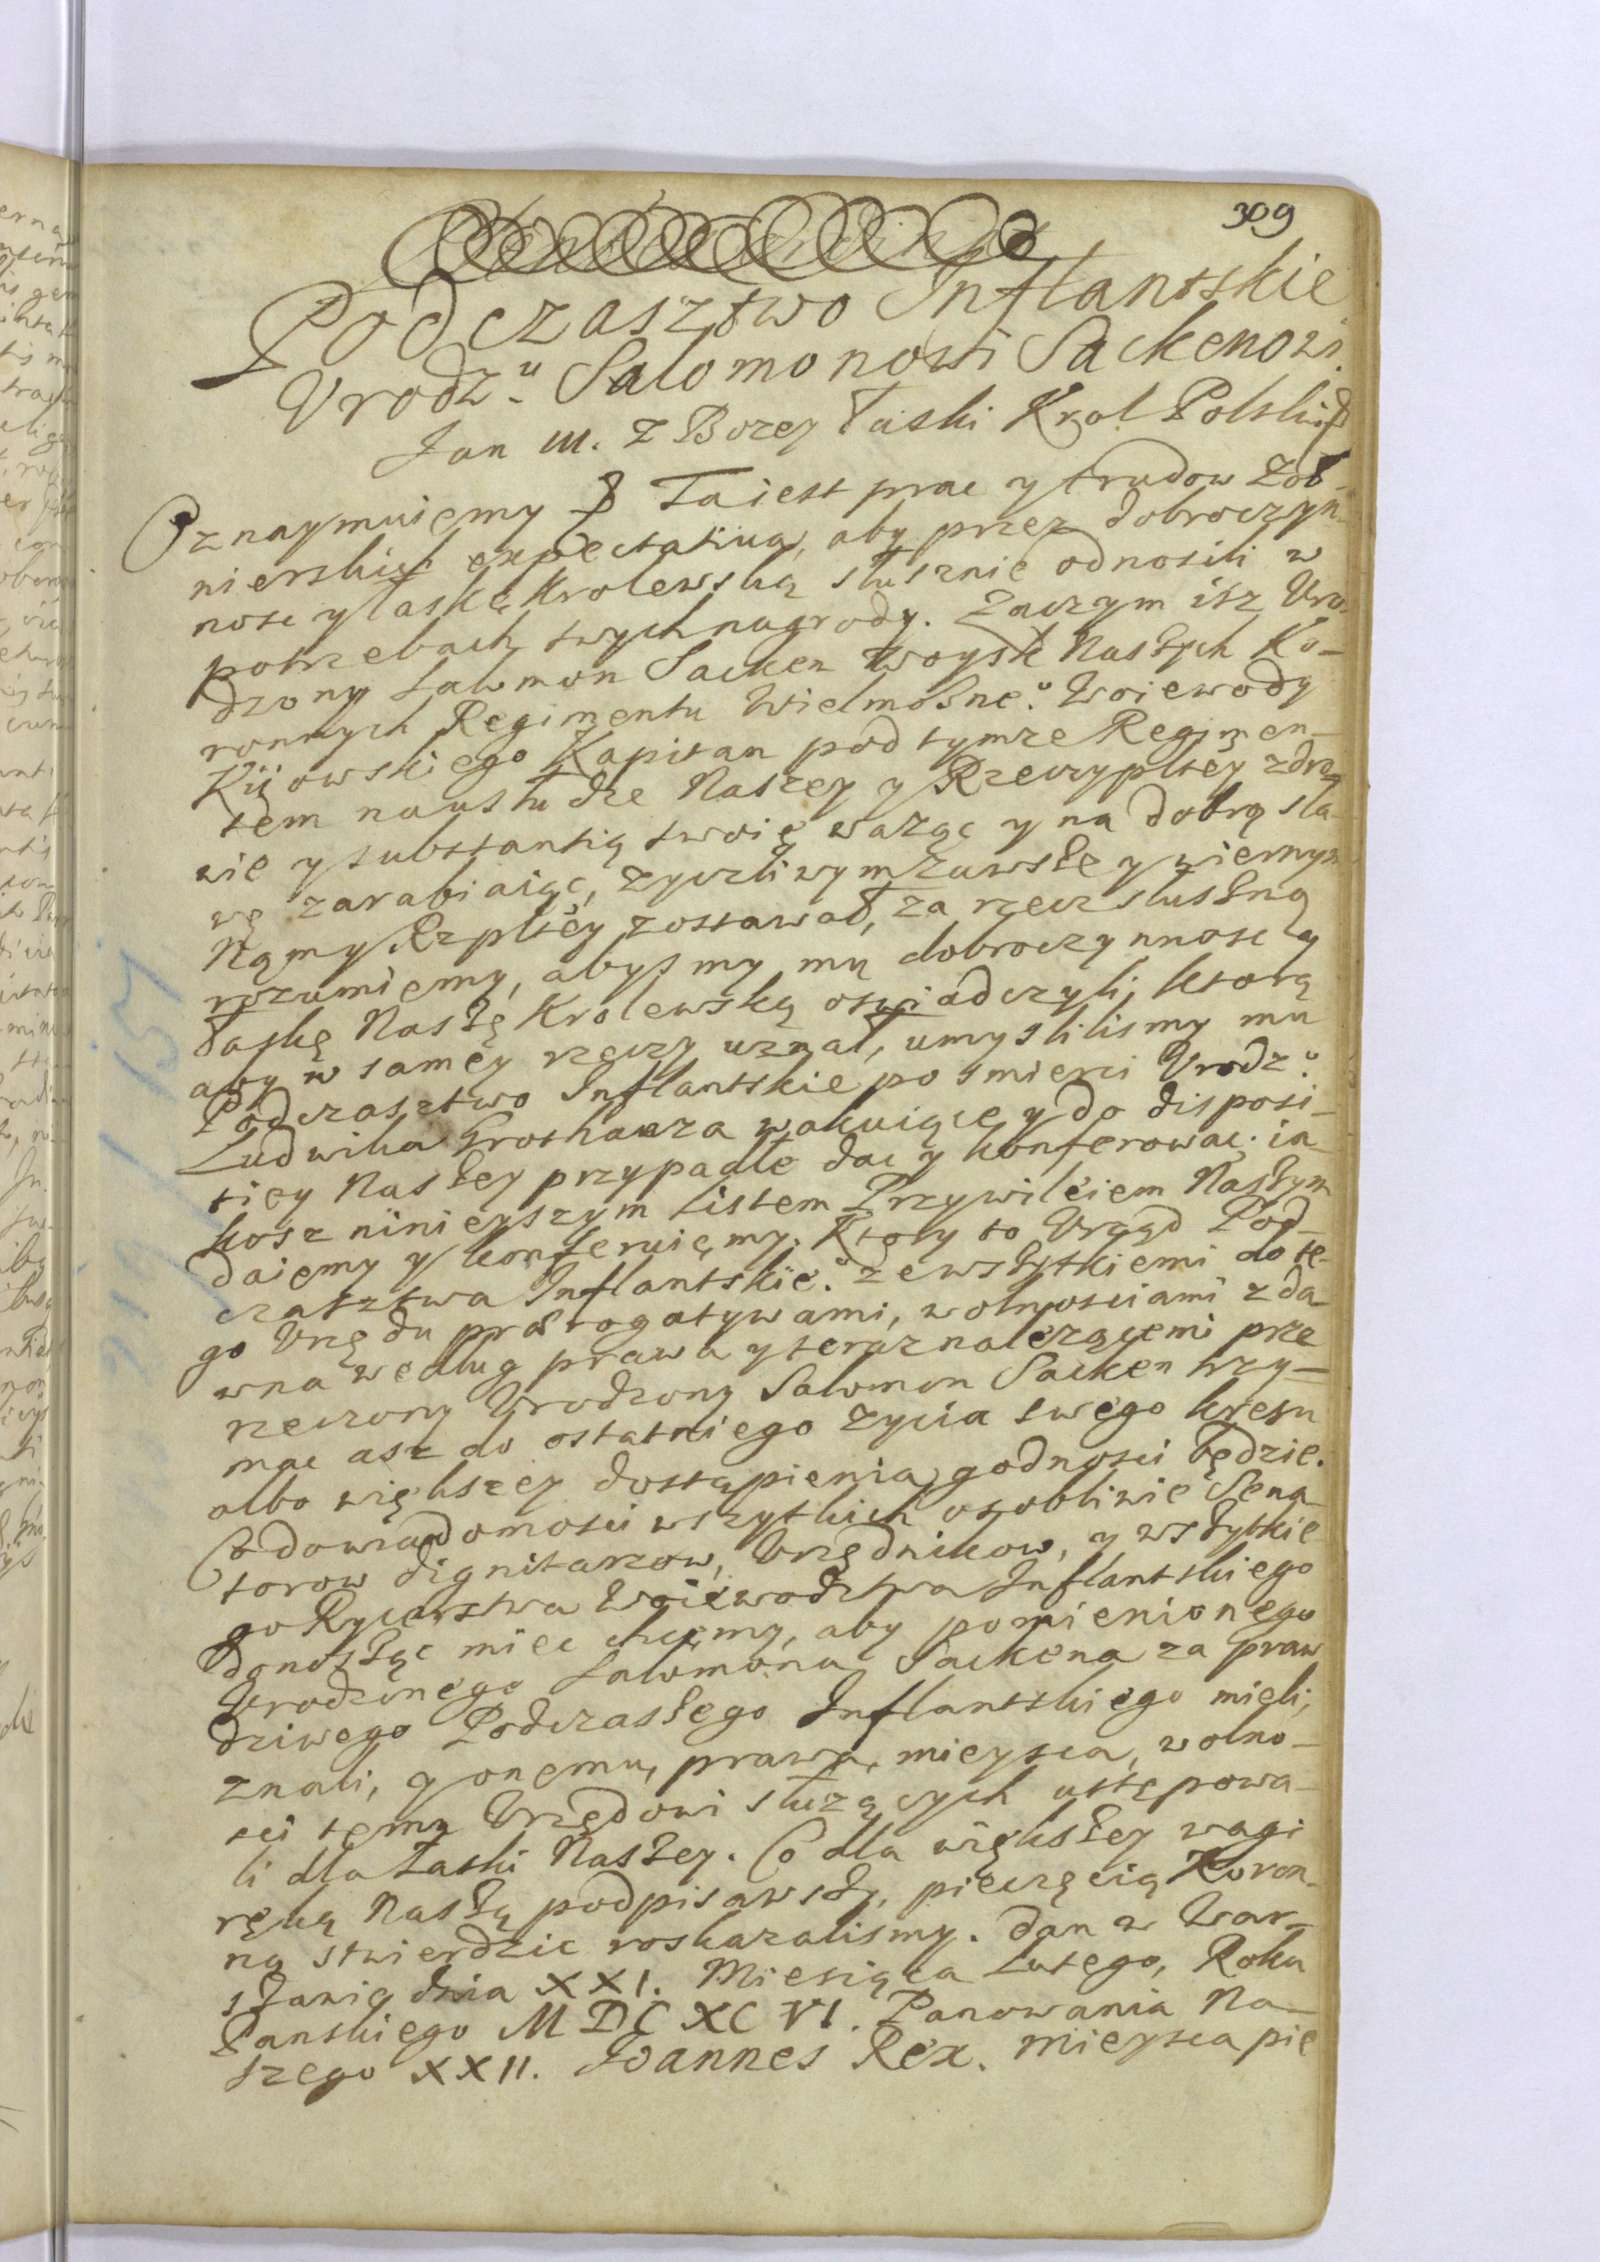 309
Podczasztwo Inflantskie
Vrodz.u Salomonowi Sackenowi.
Jan III. z Bozey Łaski Krol Polski
Oznaymuiemy Ta iest prac y trudow Żoł-
nierskich expectatiua, aby przez dobroczyn-
nosc y łaskę Krolewską słusznie odnosili w
potrzebach swych nagrody. Zaczym isz Vro-
dzony Salomon Sacken Woysk Naszych Ko-
ronnych Regimentu Wielmożne.o Woiewody
Kijowskiego Kapitan pod tymze Regimen-
tem na usłudze Naszey y Rzeczypltey zdro-
wie y substantią swoię ważąc y na dobrą sła-
wę zarabiaiąc, zyczliwym zawsze y wiernym
Nąmy Rzpltey zostawał, za rzecz słuszną
rozumiemy, abysmy mu dobroczynnosc y
łaskę Naszę Krolewską oswiadczyli, ktorą
aby w samey rzeczy uznał, umyslilismy mu
Podczasztwo Inflantskie po smierci Vrodz.o
Ludwika Grothauza wakuiące y do disposi-
tiey Naszey przypadłe dac y konferowac. ia-
kosz ninieyszym Listem Przywileiem Naszym
daiemy y konferuięmy. Ktory to Vrząd Pod-
czasztwa Inflantskie.o ze wszytkiemi do te-
go Vrzędu prærogatywami, wolnosciami z da-
wna według prawa y teraz nalezącemi prze
rzeczony Vrodzony Salomon Sacken trzy-
mac asz do ostatniego zycia swego kresu
albo większey dostąpienia godnosci będzie.
Co do wiadomosci wszytkich osobliwie Sena-
torow dignitarzow, Vrzędnikow, y wszytkie
go Rycerstwa Woiewodztwa Inflantskiego
donosząc miec chcemy, aby pomienionego
Vrodzonego Salomona Sackena za praw
dziwego Podczaszego Inflantskiego mieli,
znali, y onemu, prawa, mieysca, wolno-
sci temu Vrzędowi służących ustępowa-
li dla Łaski Naszey. Co dla większey wagi
ręką Naszą podpisawszy, pieczęcią Koron-
ną stwierdzic roskazalismy. Dan w War-
szawie dnia XXI. Miesiąca Lutego, Roku
Panskiego MDCXCVI. Panowania Na-
szego XXII. Joannes Rex. Mieysca pie